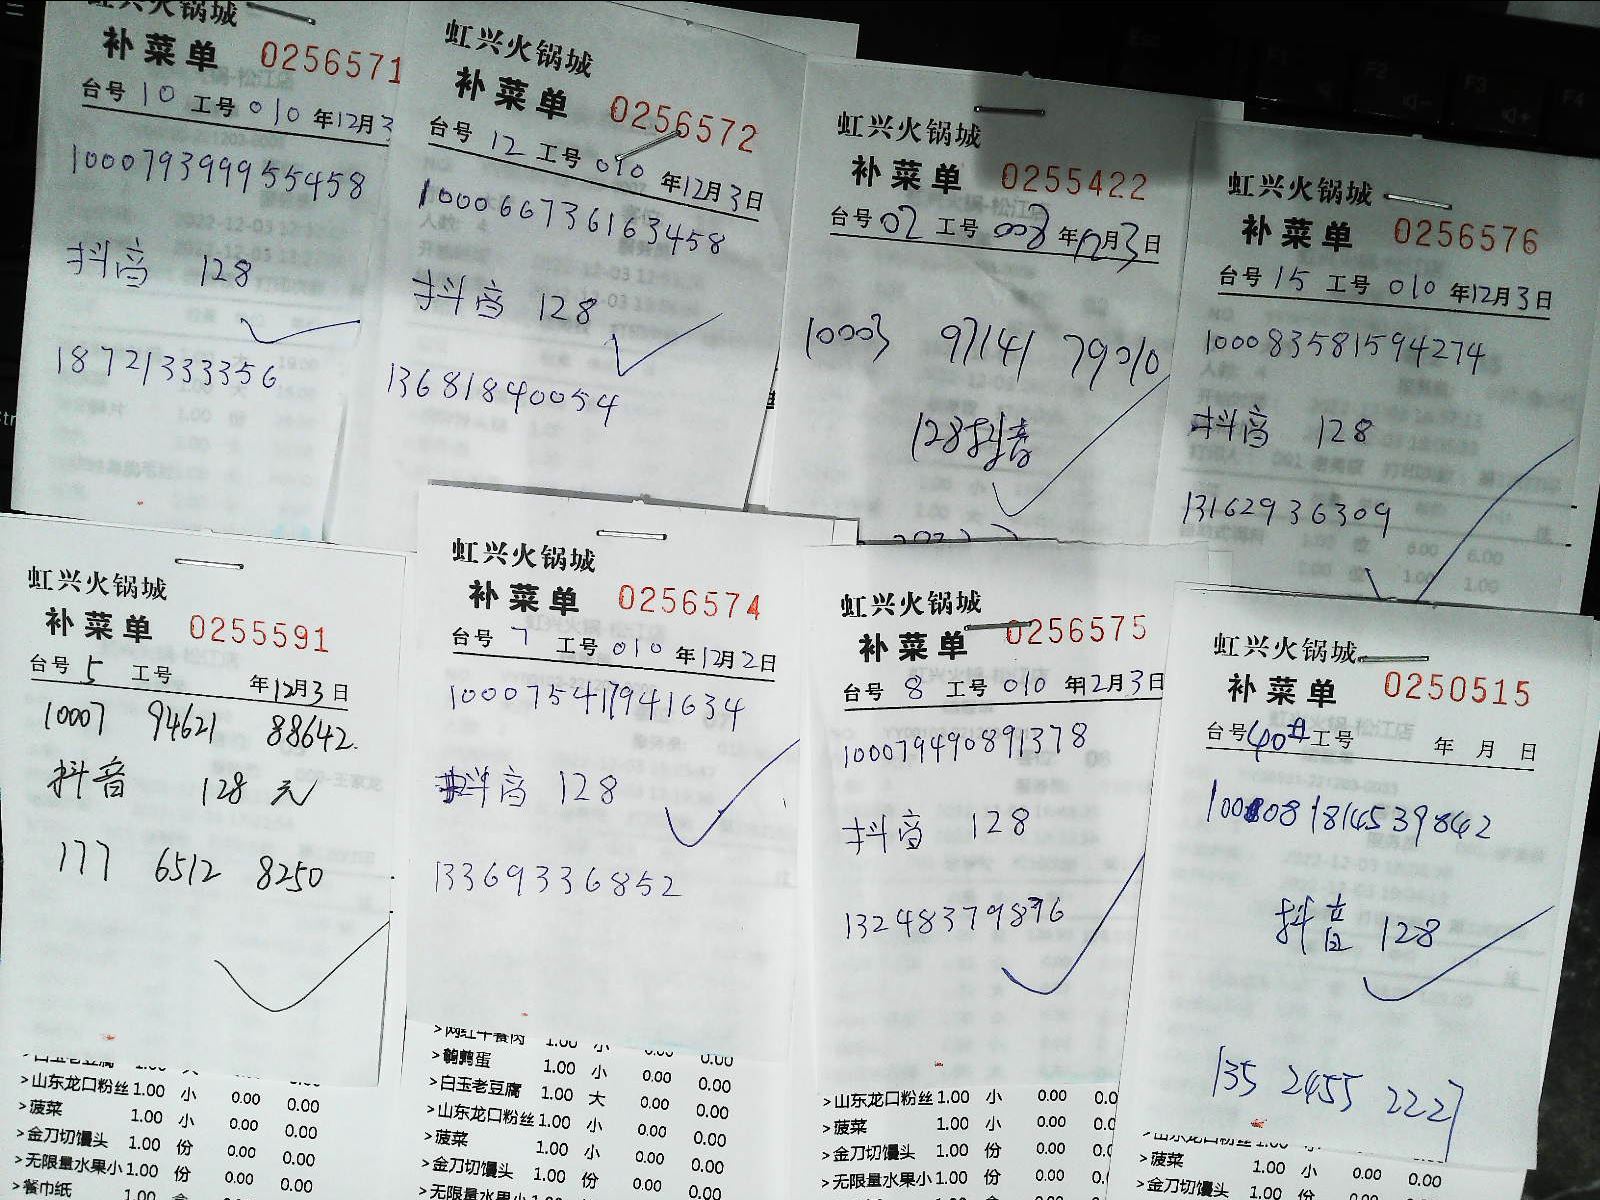 虹兴火锅城
补菜单 0256571
台号 10 工号 010 年12月3
100079399955458
抖音 128
18721333356
虹兴火锅城
补菜单 0256572
台号 12 工号 010 年12月3日
100066736163458
抖音 128
13681840054
虹兴火锅城
补菜单 0255422
台号 02 工号 008 年12月3日
10003 97141 79010
128抖音
虹兴火锅城
补菜单 0256576
台号 15 工号 010 年12月3日
100083581594274
抖音 128
13162936309
虹兴火锅城
补菜单 0255591
台号 5 工号 年12月3日
10007 94621 88642
抖音 128 元
177 6512 8250
>山东龙口粉丝 1.00 小 0.00 0.00
>菠菜 1.00 小 0.00 0.00
>金刀切馒头 1.00 份 0.00 0.00
>无限量水果小 1.00 份 0.00 0.00
>餐巾纸 1.00
虹兴火锅城
补菜单 0256574
台号 7 工号 010 年12月2日
100075417941634
抖音 128
13369336852
>鹌鹑蛋 1.00 小 0.00 0.00
>白玉老豆腐 1.00 大 0.00 0.00
>山东龙口粉丝 1.00 小 0.00 0.00
>菠菜 1.00 小 0.00 0.00
>金刀切馒头 1.00 份 0.00 0.00
>无限量水果小 1.00 份 0.00 0.00
虹兴火锅城
补菜单 0256575
台号 8 工号 010 年12月3日
100079490891378
抖音 128
13248379876
>山东龙口粉丝 1.00 小 0.00 0.0
>菠菜 1.00 小 0.00 0.0
>金刀切馒头 1.00 份 0.00 0.0
>无限量水果小 1.00 份 0.00 0.0
虹兴火锅城
补菜单 0250515
台号 40 工号 年 月 日
10008081814539842
抖音 128
135 2455 2227
>山东龙口粉丝 1.00 小 0.00 0.00
>菠菜 1.00 小 0.00 0.00
>金刀切馒头 1.00 份 0.00 0.00